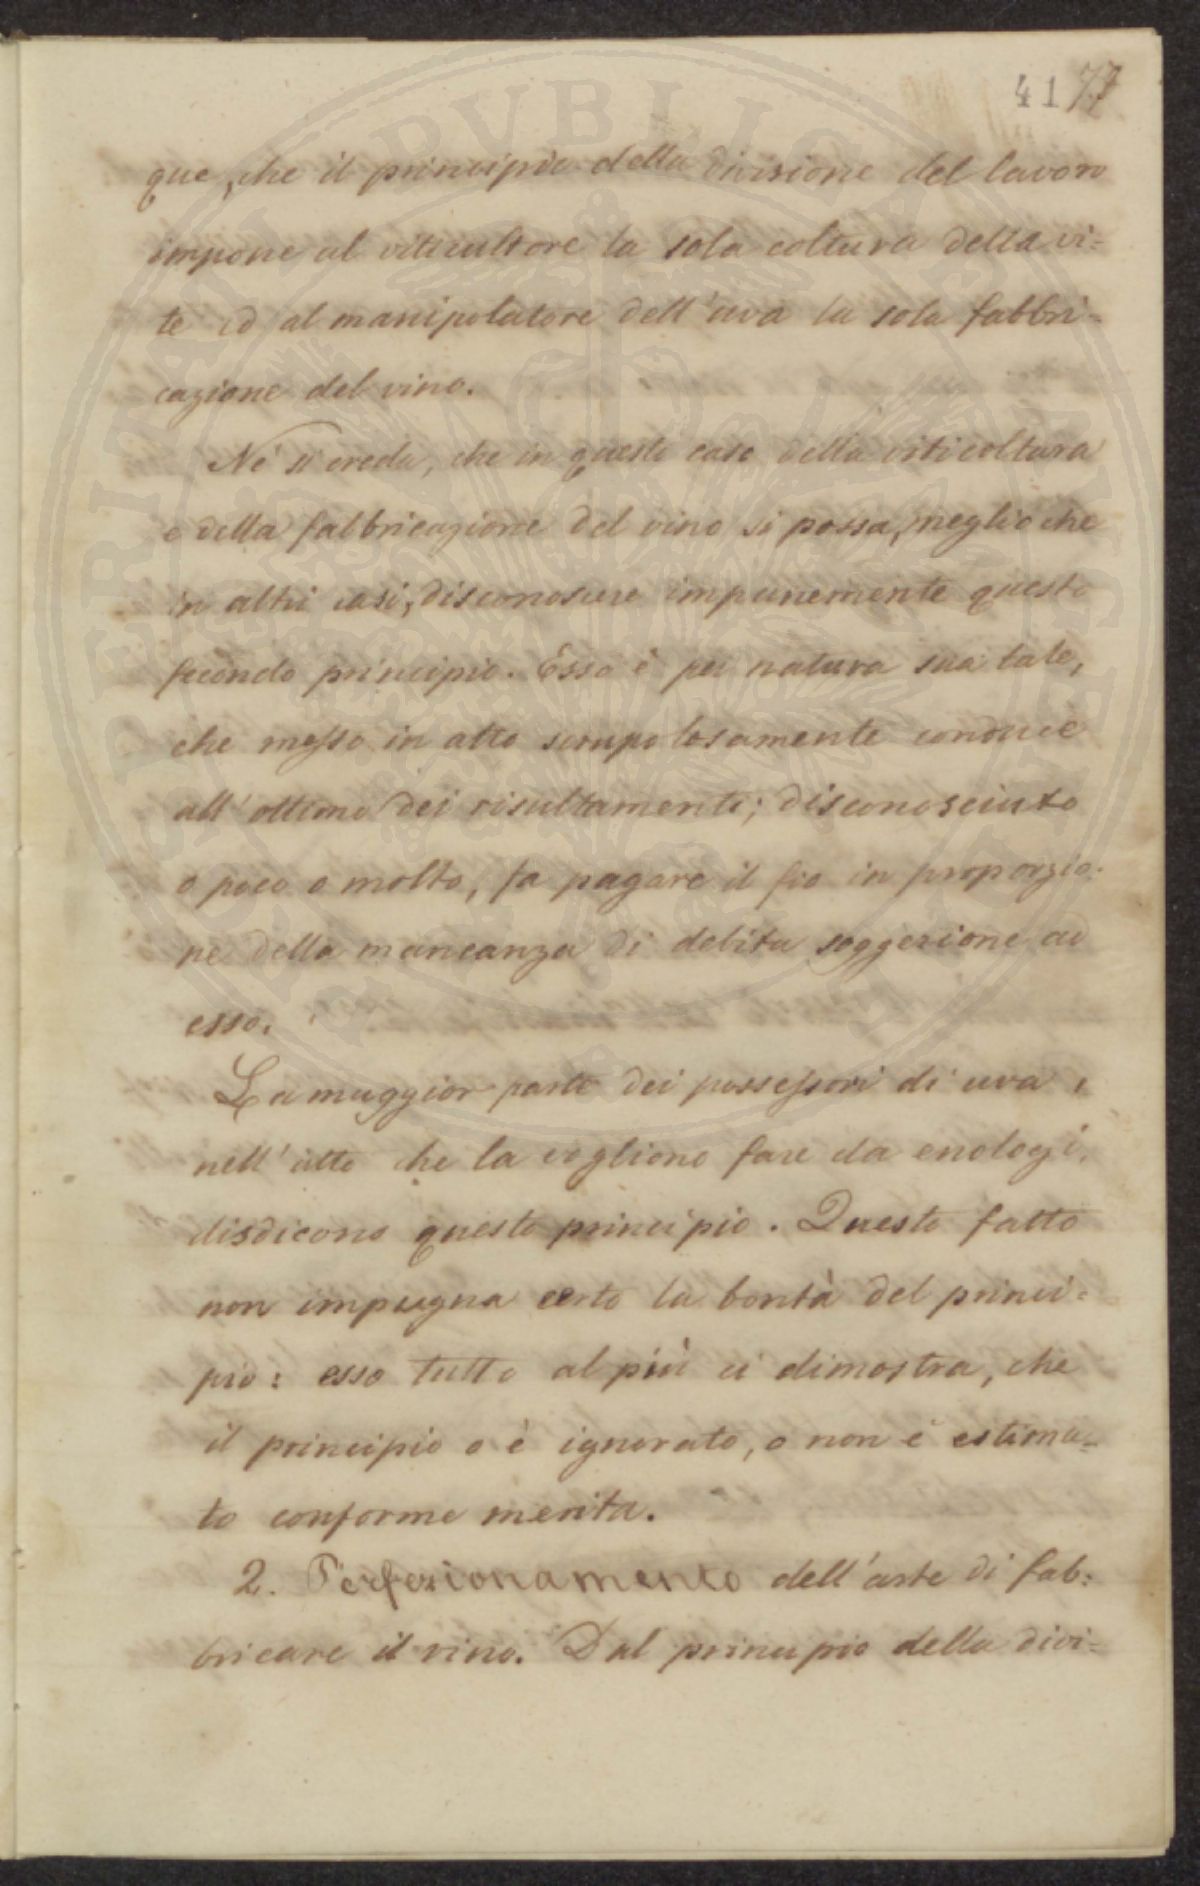 41 77
que, che il principio della divisione del lavoro
impone al viticultore la sola coltura della vi=
te ed al manipolatore dell'uva la sola fabbri=
cazione del vino.
Nè si creda, che in questo caso della viticoltura
e della fabbricazione del vino si possa, meglio che
in altri casi, disconoscere impunemente questo
secondo principio. Esso è per natura sua tale,
che messo in atto scrupolosamente conduce
all'ottimo dei risultamenti; disconosciuto
o poco o molto, fa pagare il fio in proporzio=
ne della mancanza di debita soggezione ad
esso.
La maggior parte dei possessori di uva,
nell'atto che la vogliono fare da enologi,
disdicono questo principio. Questo fatto
non impugna certo la bontà del princi=
pio: esso tutto al più ci dimostra, che
il principio o è ignorato, o non è estima=
to conforme merita.
2. Perfezionamento dell'arte di fab=
bricare il vino. Dal principio della divi=